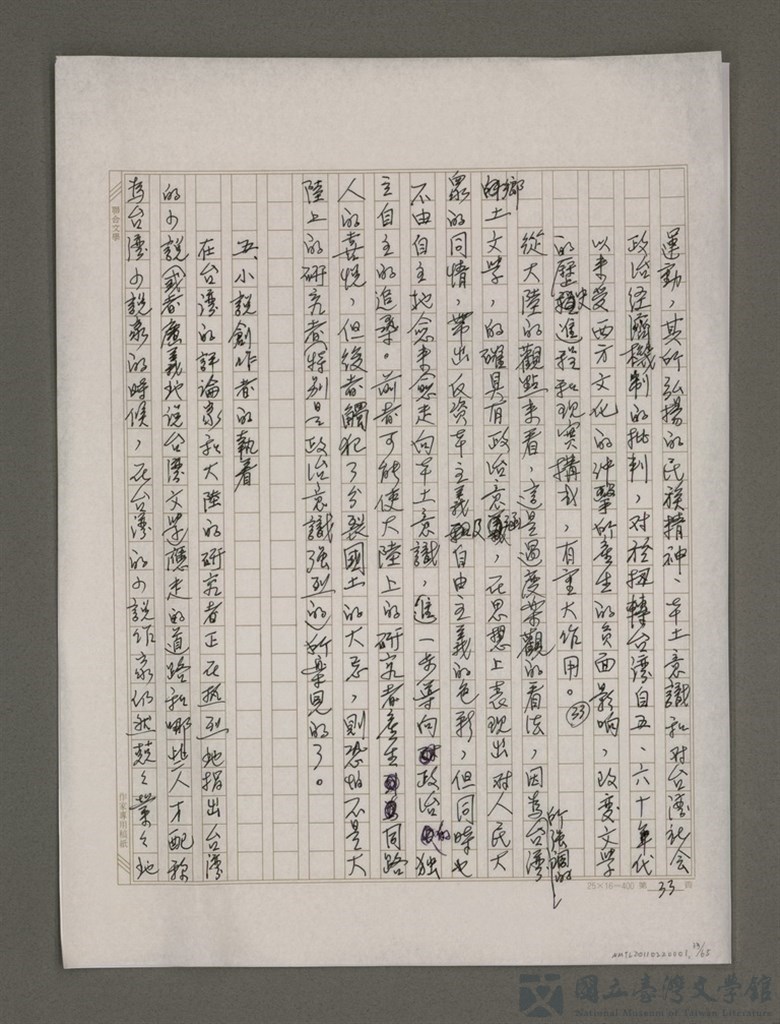 運動，其所弘揚的民族精神、本土意識和對台灣社會
政治經濟機制的批判，對於扭轉台灣自五、六十年代
以来受西方文化的冲擊所產生的負面影响，改变文学
的歷史進程和現实構成，有重大作用。㉝
從大陸的觀點来看，這是過度樂觀的看法，因為台灣所強調的
鄉土文学，的確具有政治意涵，在思想上表現出对人民大
眾的同情，帶出反資本主義及自由主義的色彩，但同時也
不由自主地愈来愈走向本土意識，進一步導向政治的独
立自主的追尋。前者可能使大陸上的研究者產生同路
人的喜悦，但後者觸犯了分裂國土的大忌，則恐怕不是大
陸上的研究者（特別是政治意識強烈的）所樂見的了。
五、小說創作者的執着
在台灣的評論家和大陸的研究者正在热烈地指出台灣
的小說（或者廣義地說台灣文学）應走的道路和哪些人才配称
為台灣小說家的時候，在台灣的小說作家仍然兢々業々地
聯合文學
作家專用稿紙
25×16=400 第 33 頁
33/65
國立臺灣文學館
National Museum of Taiwan Literature